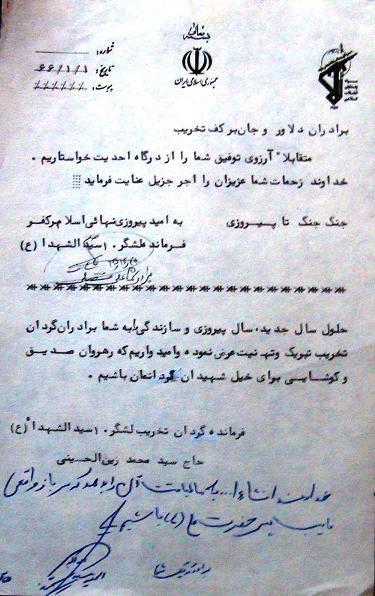 بسمه تعالی
شماره:
جمهوری اسلامی ایران
تاریخ: ۶۶/۱/۱
پیوست:
برادران دلاور و جان بر کف تخریب
متقابلا" آرزوی توفیق شما را از درگاه احدیت خواستاریم .
خداوند زحمات شما عزیزان را اجر جزیل عنایت فرماید
جنگ جنگ تا پیروزی
به امید پیروزی نهائی اسلام بر کفر
فرمانده لشگر ۱۰ سید الشهداء (ع)
حلول سال جدید، سال پیروزی و سازندگی را به شما برادران گردان
تخریب تبریک و تهنیت عرض نموده و امید واریم که رهروان صدیق
و کوشایی برای خیل شهیدان گردانمان باشیم .
فرمانده گردان تخریب لشگر ۱۰ سید الشهداء (ع)
حاج سید محمد زین الحسینی
خداوند انشاءا... به ما لیاقت آن را بدهد که سرباز واقعی
باشیم